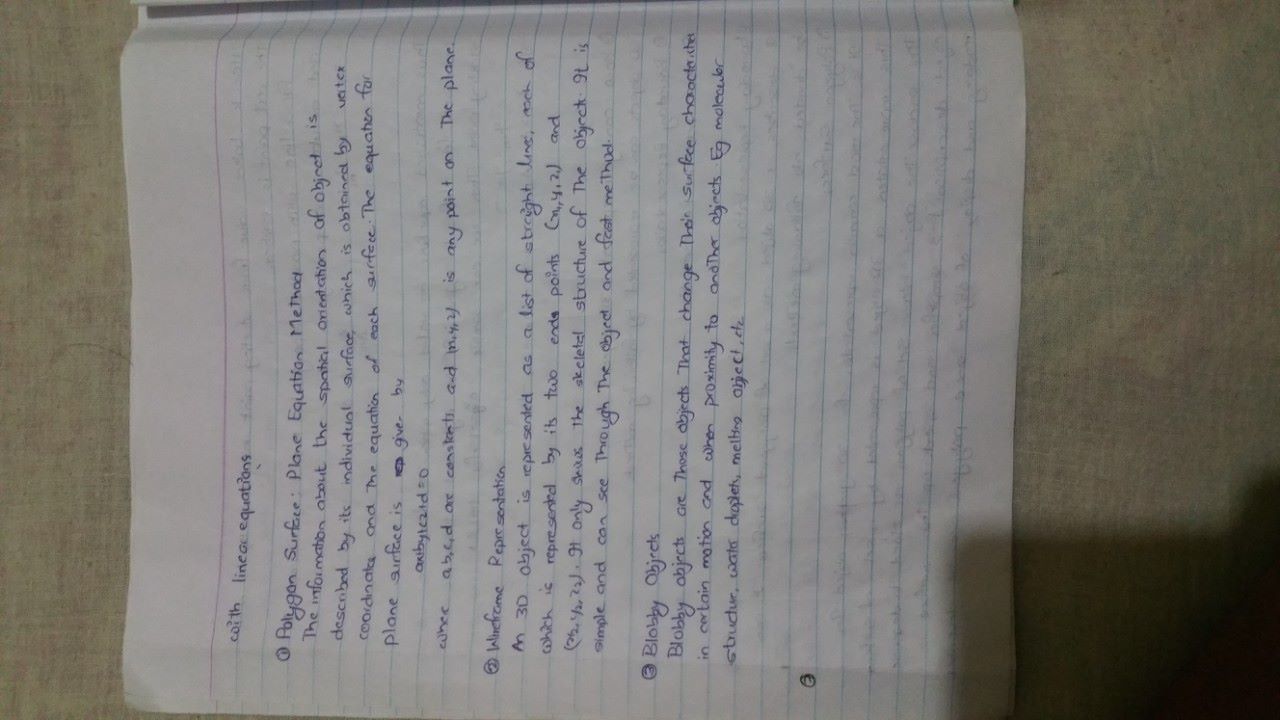 with linear equations
① Polygon Surface: Plane Equation Method
The information about the spatial orientation of object is
described by its individual surface, which is obtained by vertex
coordinates and the equation of each surface. The equation for
plane surface is given by
ax+by+cz+d=0
where a,b,c,d are constants and (x,y,z) is any point on The plane.
② Wireframe Representation
An 3D object is represented as a list of straight line, each of
which is represented by its two ends points (x1,y1,z1) and
(x2,y2,z2). It only shows The skeletal structure of The object. It is
simple and can see Through The object and fast method.
③ Blobby Objects
Blobby objects are Those objects That change Their surface characteristics
in certain motion and when proximity to another objects. Eg molecular
structure, water droplets, melting object, etc